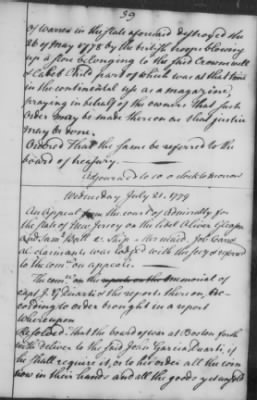 39
of Warren in the state aforesaid destroyed the
26 of May 1778 by the british troops blowing
up a store belonging to the said Cromwell
& Cabel Child part of which was at that time
in the continental use as a magazine,
praying in behalf of the owners that such
order may be made thereon as that justice
may be done.
Ordered That the same be referred to the
board of treasury.
Adjourned to 10 o Clock to morrow
Wednesday July 21. 1779
An Appeal from the court of admiralty for
the state of New Jersey on the libel Oliver
& Sam Ball Ship
claimants was lodged with the referred
to the comee on appeals.
The comee on the memorial of
capt J. G. Duarti & the reports thereon,
cording to order brought in a report
Whereupon
Resolved. That the board of war at Boston forth
with deliver to the said John Garcia Duarti, if
he shall require it, or to his order all the corn
now in their hands and all the goods yet